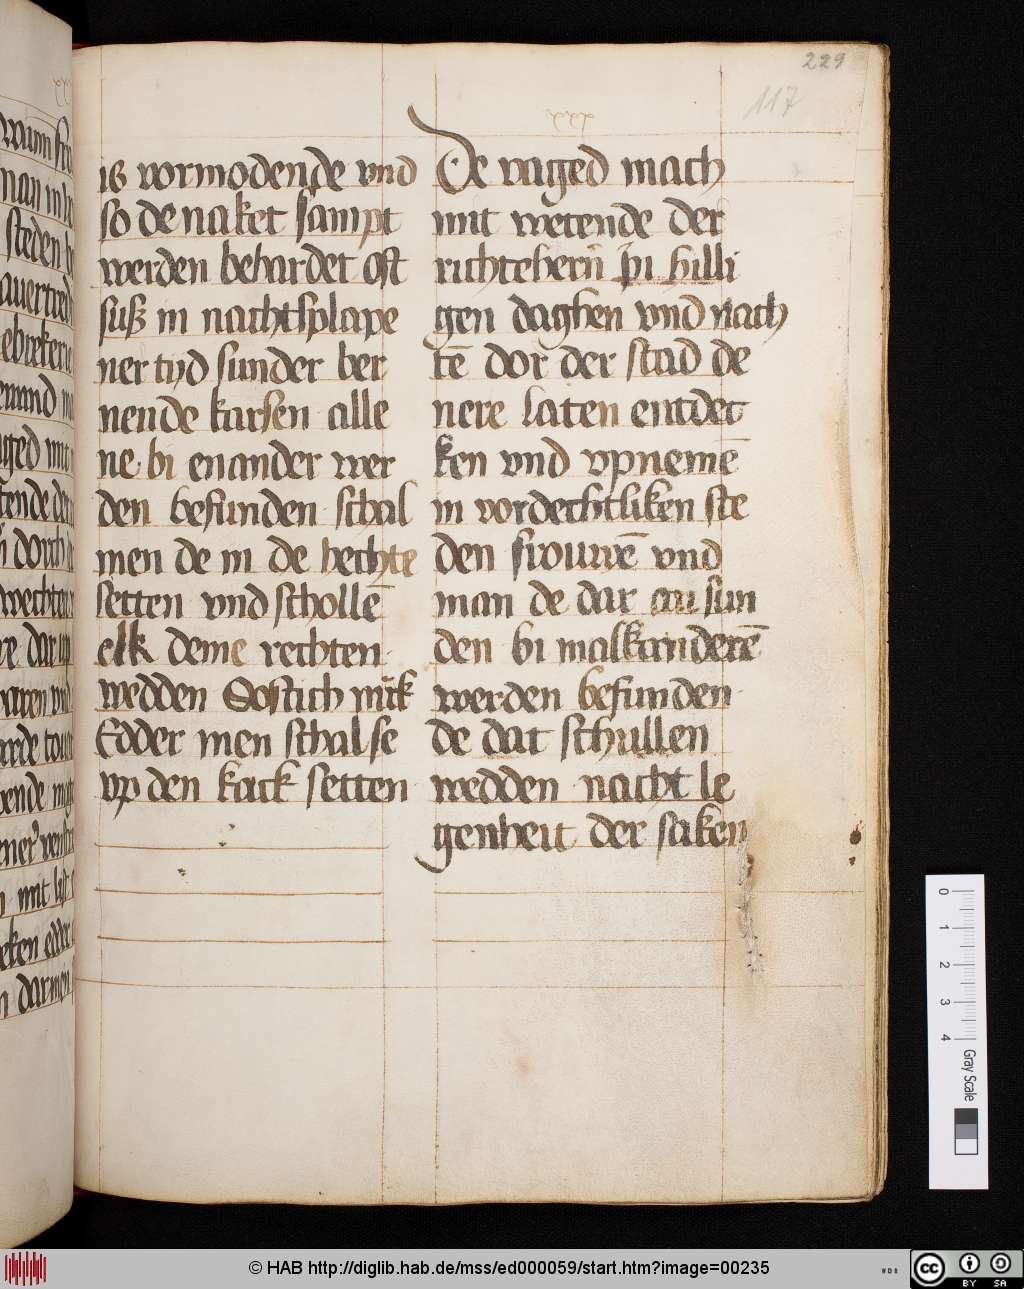 229
117
xxx
is vormodende vnd
so de naket sampt
werden behardet oft
suß in nachtslapen
ner tyd sunder ber
nende karsen alle
ne bi enander wer
den befunden schal
men de in de hechte
setten vnd schollē
elk deme rechten
wedden Sostich mrk
Edder men schal se
vp den kack setten
De vaged mach
mit wetende der
richtehern̄ pi hilli
gen daghen vnd nach
tē dor der stad de
nere laten entdec
ken vnd vpnemē
in vordechtliken ste
den frouwē vnd
man de dar an sun
den bi malkanderē
werden befunden
de dat schullen
wedden nacht le
genheit der saken
0 1 2 3 4
Gray Scale
© HAB http://diglib.hab.de/mss/ed000059/start.htm?image=00235
WDB
cc BY SA